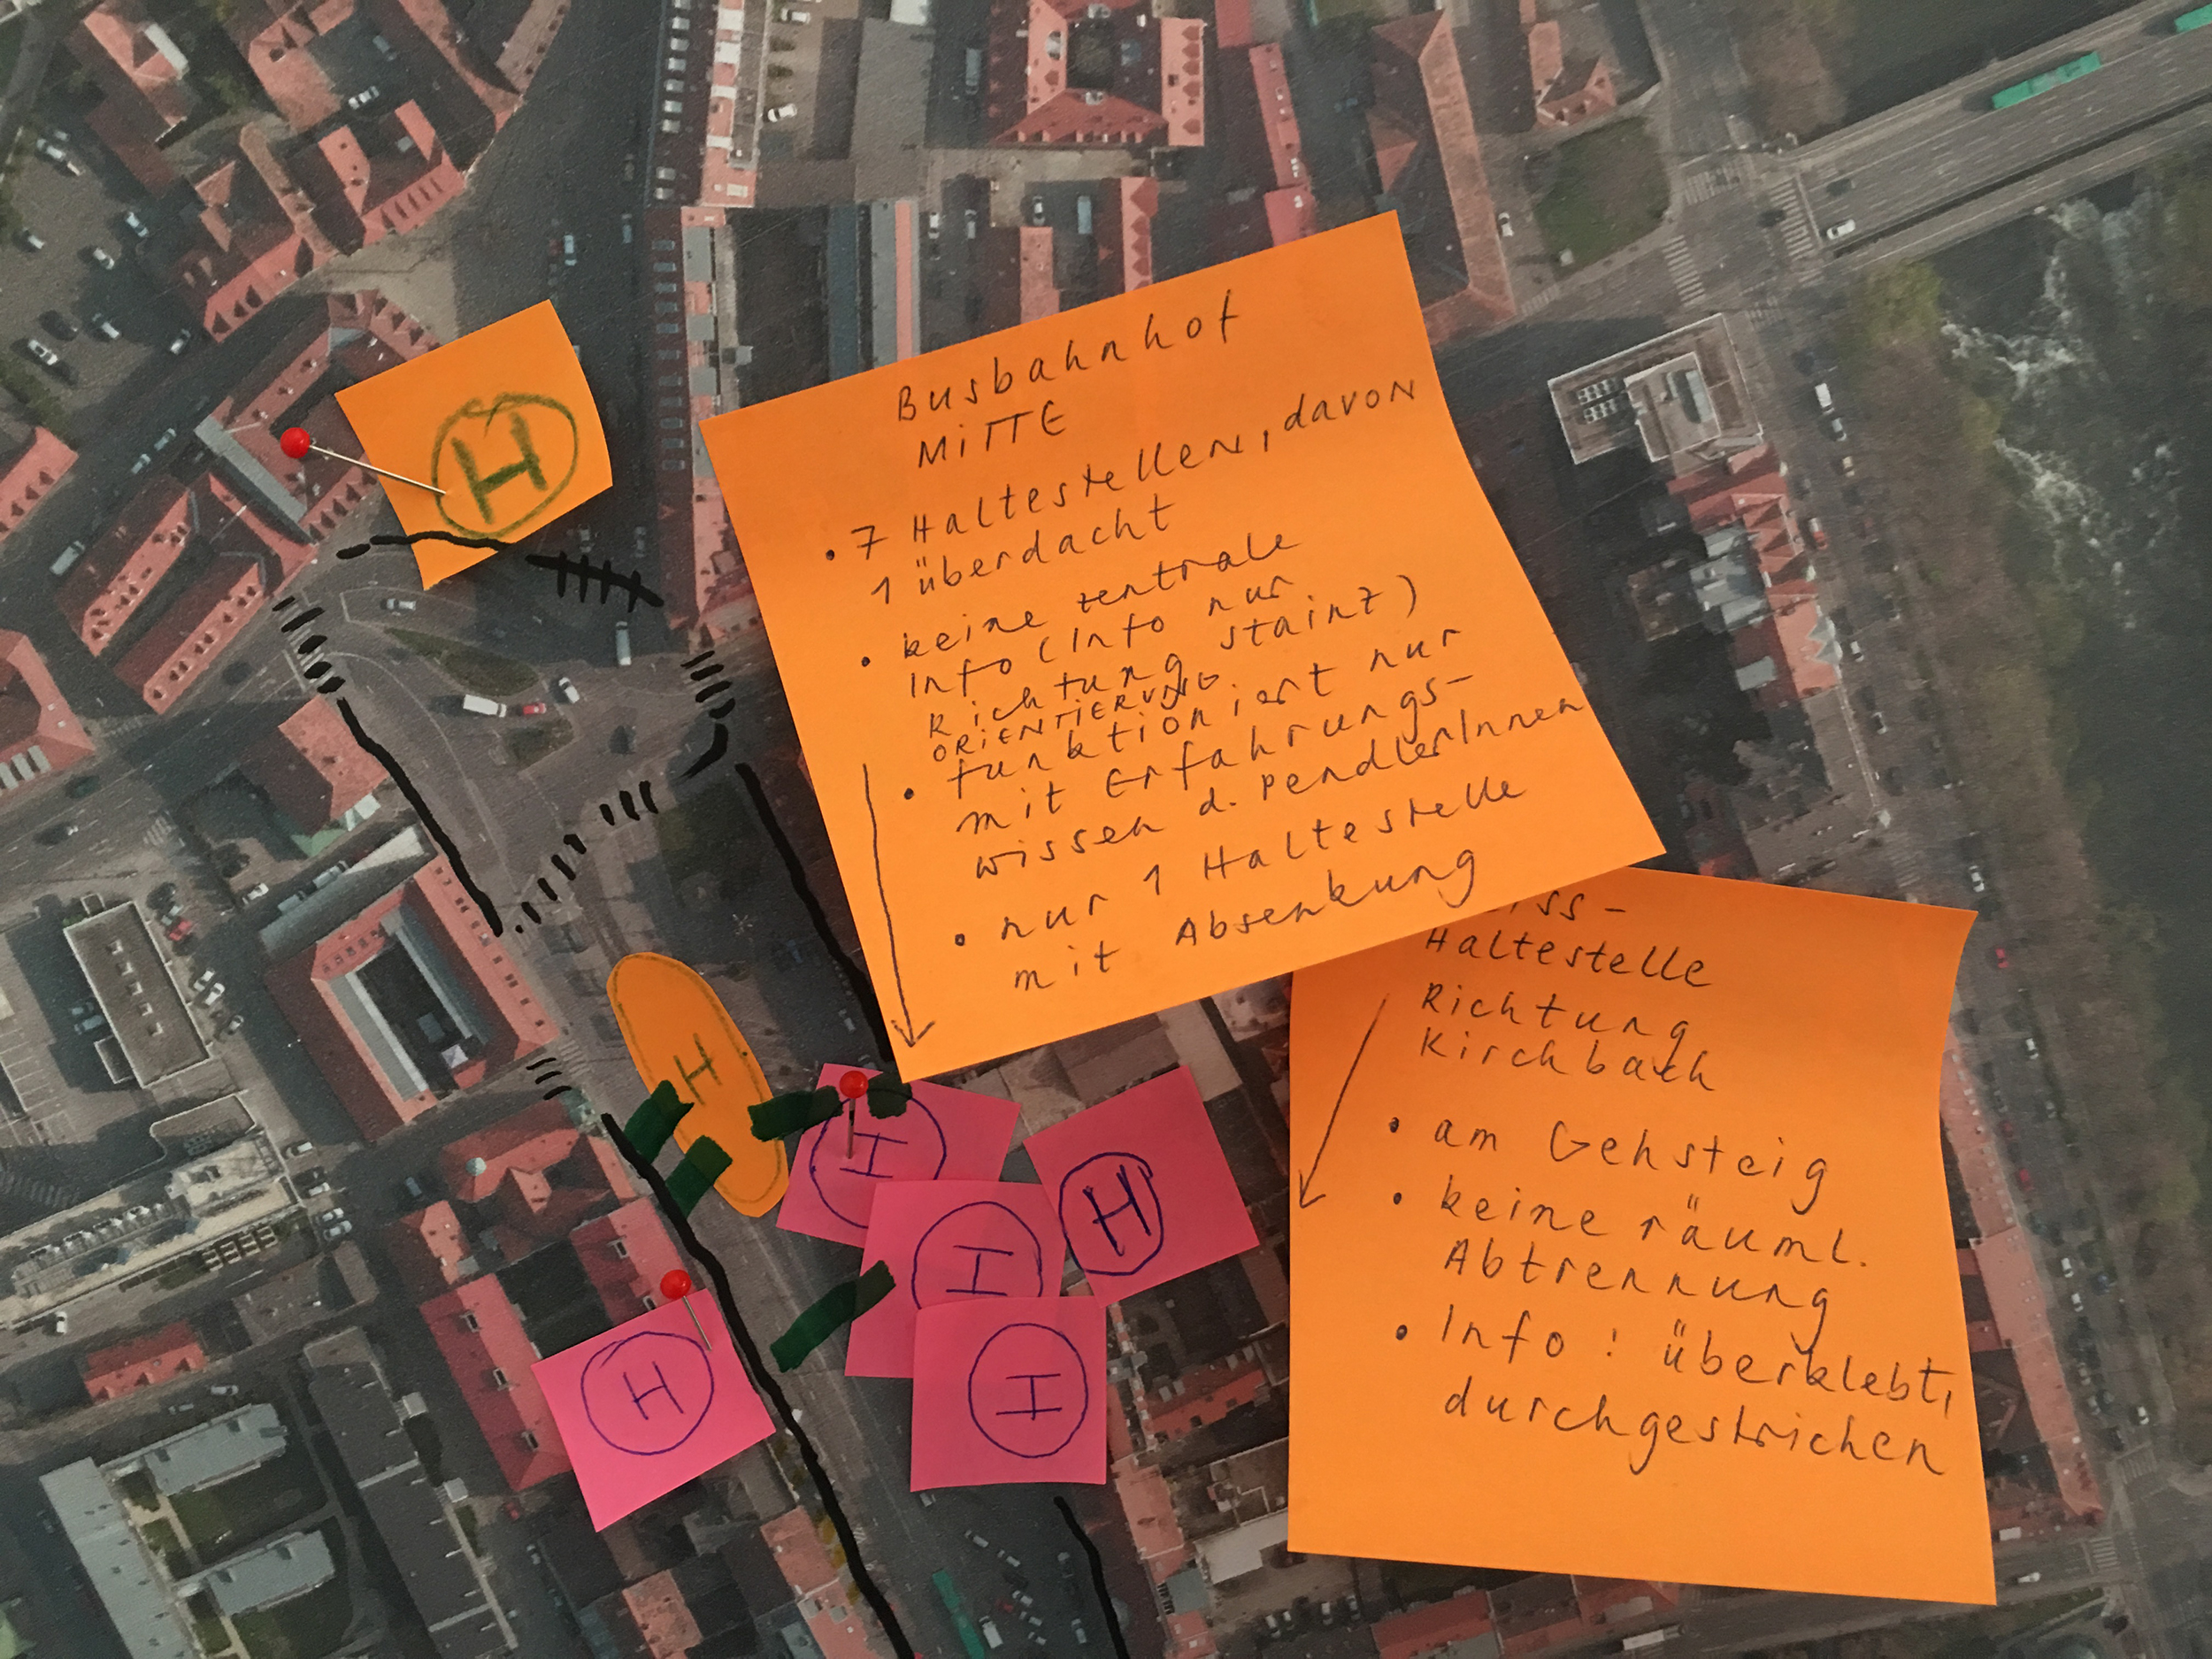 H
Busbahnhof
MiTTE
• 7 Haltestellen, davon
1 überdacht
• keine zentrale
Info (Info nur
Richtung Stainz)
ORiENTiERUNG
• funktioniert nur
mit Erfahrungs-
wissen d. PendlerInnen
• nur 1 Haltestelle
mit Absenkung
Haltestelle
Richtung
Kirchbach
• am Gehsteig
• keine räuml.
Abtrennung
• Info: überklebt,
durchgestrichen
H
H
H
H
H
H